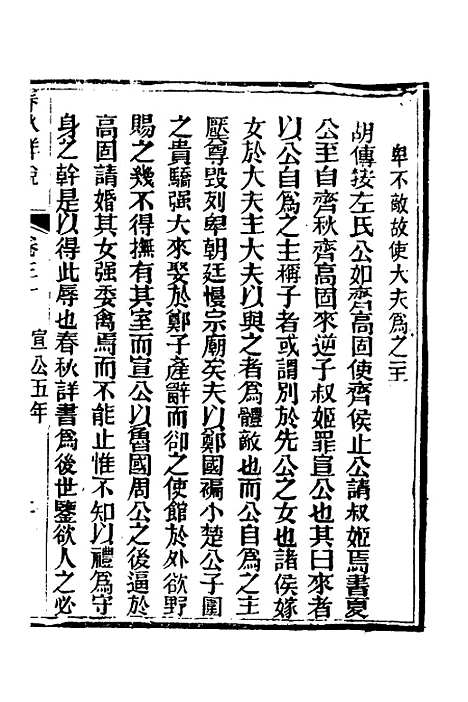 卑不敵故使大夫爲之主
胡傳按左氏公如齊高固使齊侯止公請叔姬焉書夏
公至自齊秋齊高固來逆子叔姬罪宣公也其曰來者
以公自爲之主稱子者或謂別於先公之女也諸侯嫁
女於大夫主大夫以與之者爲體敵也而公自爲之主
壓尊毀列卑朝廷慢宗廟矣夫以鄭國褊小楚公子圍
之貴驕强大來娶於鄭子產辭而卻之使館於外欲野
賜之幾不得撫有其室而宣公以魯國周公之後逼於
高固請婚其女强委禽焉而不能止惟不知以禮爲守
身之幹是以得此辱也春秋詳書爲後世鑒欲人之必
春秋詳說
卷三
宣公五年